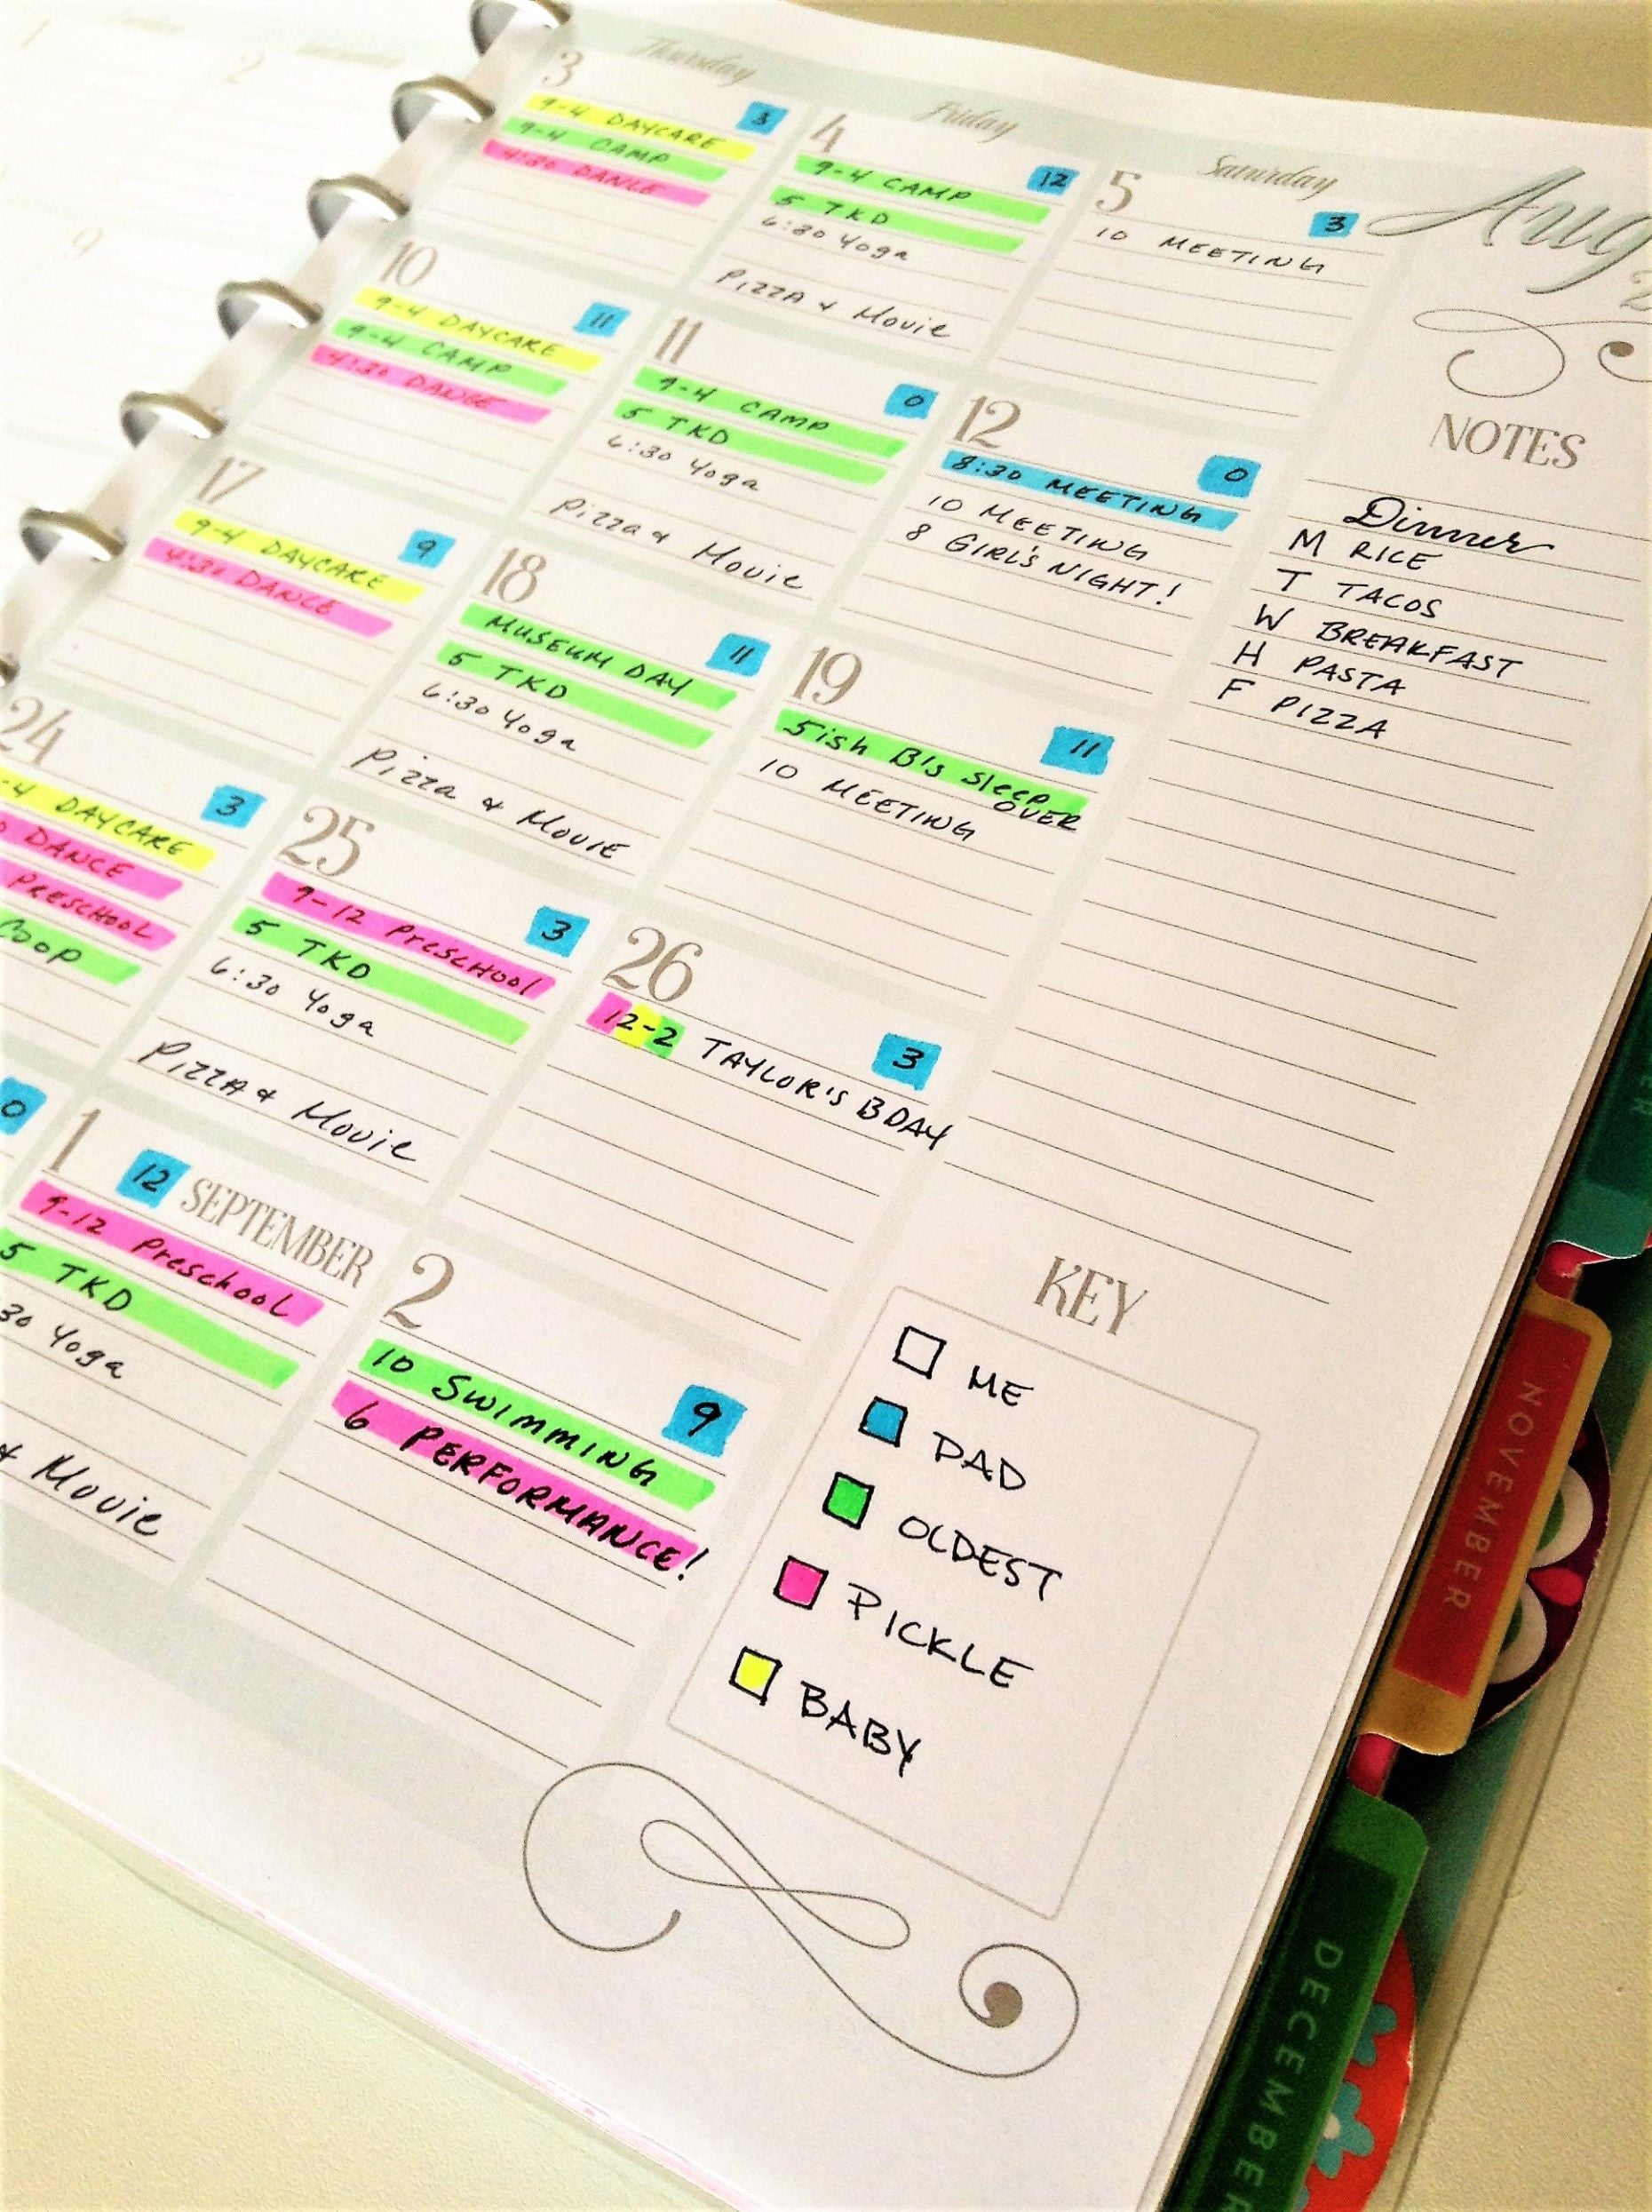 1
2
Thursday
Friday
Saturday
3
3
9-4 DAYCARE
9-4 CAMP
4:30 DANCE
4
12
9-4 CAMP
5 TKD
6:30 Yoga
PIZZA & Movie
5
3
10 MEETING
9
10
11
9-4 DAYCARE
9-4 CAMP
4:30 DANCE
11
0
9-4 CAMP
5 TKD
6:30 Yoga
Pizza & Movie
12
0
8:30 MEETING
10 MEETING
8 GIRL'S NIGHT!
17
9
9-4 DAYCARE
4:30 DANCE
18
11
MUSEUM DAY
5 TKD
6:30 Yoga
Pizza & MOVIE
19
11
5ish B's Sleep
OVER
10 MEETING
24
3
-4 DAYCARE
DANCE
PRESCHOOL
COOP
25
3
9-12 PRESCHOOl
5 TKD
6:30 Yoga
PIZZA & Movie
26
3
12-2 TAYLOR'S BDAY
0
1
12
SEPTEMBER
9-12 Preschool
5 TKD
30 Yoga
& Movie
2
9
10 SWIMMING
6 PERFORMANCE!
Aug
NOTES
Dinner
M RICE
T TACOS
W BREAKFAST
H PASTA
F PIZZA
KEY
ME
DAD
OLDEST
PICKLE
BABY
NOVEMBER
DECEMBER